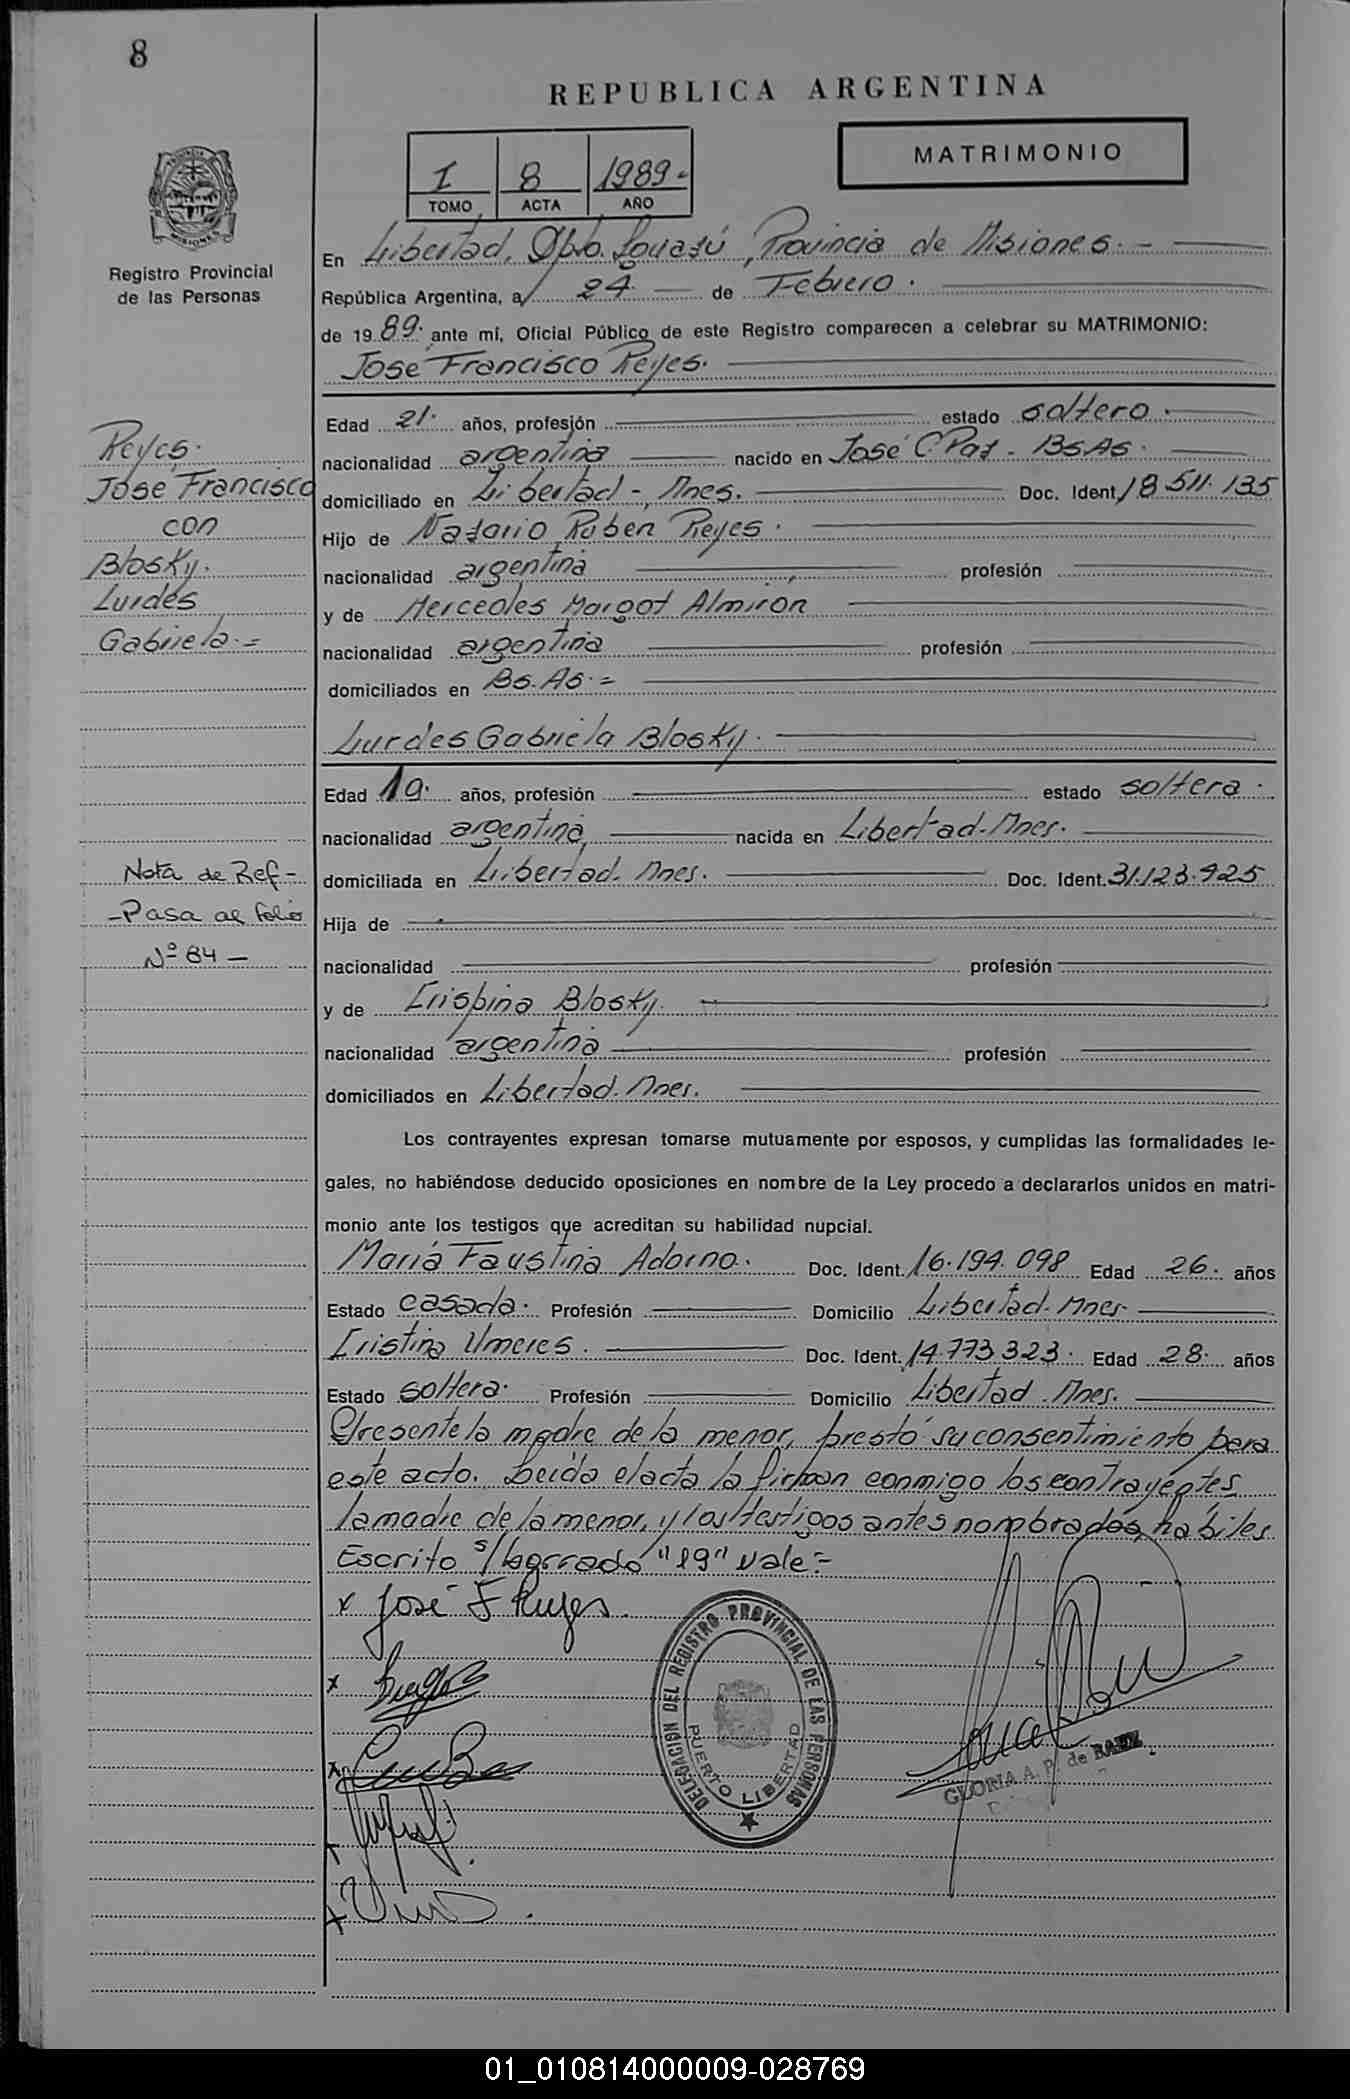 8
REPUBLICA ARGENTINA
MATRIMONIO
I 8 1989-
TOMO ACTA AÑO
PROVINCIA
MISIONES
Registro Provincial
de las Personas
En Libertad, Dpto. Iguazú, Provincia de Misiones. -
República Argentina, a 24 de Febrero.
de 1989. ante mí, Oficial Público de este Registro comparecen a celebrar su MATRIMONIO:
José Francisco Reyes.
Edad 21. años, profesión estado soltero.
nacionalidad argentina nacido en José C Paz - BsAs.
domiciliado en Libertad -, Mnes. Doc. Ident. 18 511.135
Hijo de Nazario Ruben Reyes.
nacionalidad argentina profesión
y de Mercedes Margot Almirón
nacionalidad argentina profesión
domiciliados en Bs.As. =
Reyes.
José Francisco
con
Blosky.
Lurdes
Gabriela. =
Lurdes Gabriela Blosky.
Edad 19. años, profesión estado soltera.
nacionalidad argentina, nacida en Libertad-Mnes.
domiciliada en Libertad. Mnes. Doc. Ident. 31.123.925
Hija de
nacionalidad profesión
y de Crispina Blosky.
nacionalidad argentina profesión
domiciliados en Libertad. Mnes.
Nota de Ref-
-Pasa al folio
Nº 84 -
Los contrayentes expresan tomarse mutuamente por esposos, y cumplidas las formalidades le-
gales, no habiéndose deducido oposiciones en nombre de la Ley procedo a declararlos unidos en matri-
monio ante los testigos que acreditan su habilidad nupcial.
María Faustina Adorno. Doc. Ident. 16.194.098 Edad 26. años
Estado casada. Profesión Domicilio Libertad-Mnes-
Cristina Umeres. Doc. Ident. 14.773 323. Edad 28. años
Estado soltera. Profesión Domicilio Libertad. Mnes.
Presente la madre de la menor, prestó su consentimiento para
este acto. Leida el acta la firman conmigo los contrayentes
la madre de la menor, y los testigos antes nombrados, hábiles
Escrito s/borrado "19" vale=
x José F Reyes.
DELEGACION DEL REGISTRO PROVINCIAL DE LAS PERSONAS
PUERTO LIBERTAD
GLORIA A. P. de BAEZ
01_010814000009-028769